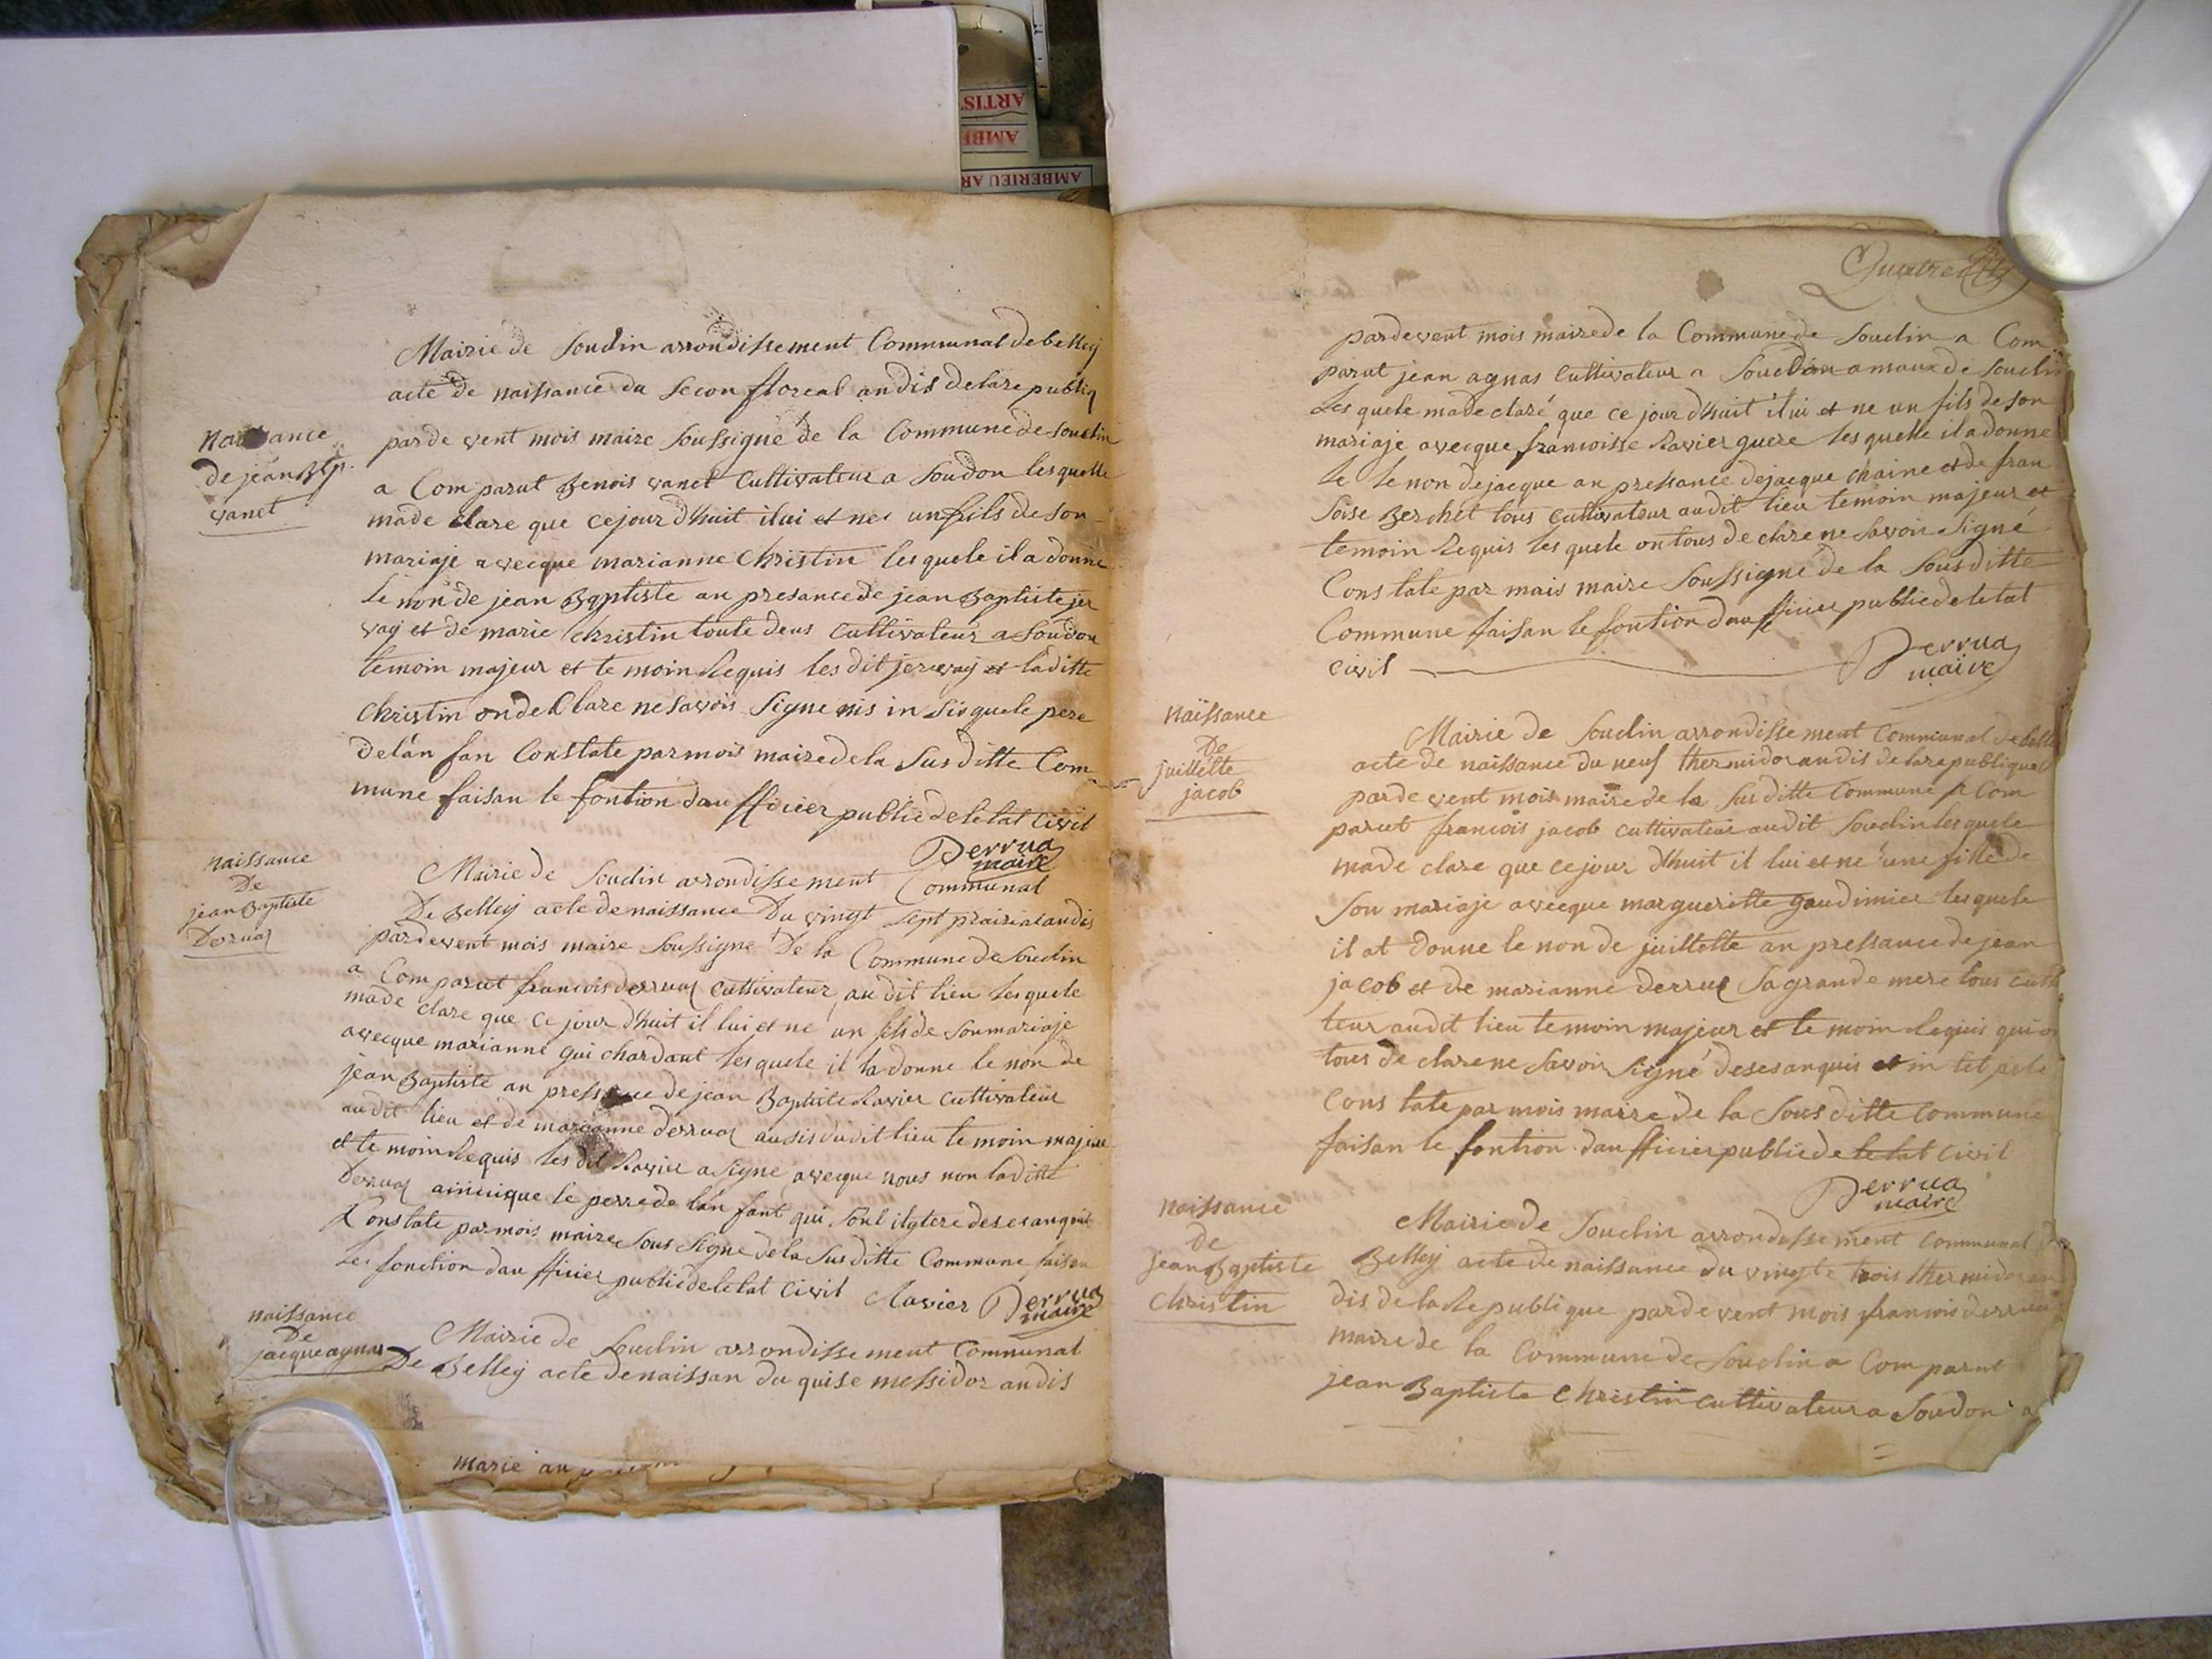 ARTIS
AMB
AMBERIEU AR
Mairie de Soudin arrondissement Communal de belley
acte de naissance du Secon floreal an dis de la re publiq
naissance
de jean Btp.
vanet
par de vent mois maire Soussigné de la Commune de Soudin
a Com parut Benois vanet Cultivateur a Soudon les quelle
ma de clare que ce jour d'huit il ui et ne un fils de son
mariaje a vecque marianne Christin les quele il a donne
le non de jean Baptiste an presance de jean Baptiste jer
vaij et de marie Christin toute deus Cultivateur a Soudon
temoin majeur et te moin Requis les dit jervaij et la ditte
Christin on de Clare ne Savois Signe nis in Sis quele pere
de lan fan Constate par mois maire de la Sus ditte Com
mune faisan le fontion dau fficier public de le tat Civil
Derrua
maire
naissance
De
jean Baptiste
Derruaz
Mairie de Soudin arrondisse ment Communal
De Belley acte de naissance Du vingt Sept prairial an dis
par de vent mois maire Soussigne De la Commune de Soudin
a Com parut francois derruaz Cultivateur au dit lieu les quele
ma de clare que ce jour d'huit il lui et ne un fils de Son mariaje
avecque marianne gui chardant les quele il la donne le non de
jean Baptiste an pressance de jean Baptiste Ravier Cultivateur
au dit lieu et de marianne derruaz ausis du dit lieu te moin majeur
et te moin Requis les dit Ravier a Signe avecque nous non la ditte
Derruaz ainsique le perre de lan fant qui Sont il ytere de ses an quit
Constate par mois maire Sous Signe de la Sus ditte Commune faisan
les fonction dau fficier public de le tat Civil Ravier Derrua
maire
naissance
De
jacque agnas
Mairie de Soudin arrondisse ment Communal
De Belley acte de naissan du quise messidor an dis
marie an
Quatre
par de vent mois maire de la Commune de Soudin a Com
parut jean agnas Cultivateur a Soudin a maux de Soudin
Les quele ma de claré que ce jour d'huit il ui et ne un fils de son
mariaje avecque francoisse Ravier guere les quelle il a donne
le le non de jacque an pressance de jacque chaine et de fran
Soise Berchet tous Cultivateur au dit lieu temoin majeur et
temoin Requis les quele on tous de clare ne Savoir Signé
Cons tate par mais maire Soussigné de la Sous ditte
Commune faisan le fontion dau fficier public de le tat
civil Derrua
maire
naissance
De
juillette
jacob
Mairie de Soudin arrondisse ment Communal de belle
acte de naissance du neuf thermidor an dis de la re publique
par de vent mois maire de la Sus ditte Commune a Com
parut francois jacob cultivateur au dit Soudin les quele
ma de clare que ce jour d'huit il lui et ne une fille de
Son mariaje avecque margueritte gaudimier les quele
il at donne le non de juillette an pressance de jean
jacob et de marianne derrua Sa grande mere tous cult
teur au dit lieu temoin majeur et te moin Requis qui on
tous de clare ne Savoir Signé de ses an quis et in tel pele
Cons tate par mois maire de la Sous ditte Commune
faisan le fontion dau fficier public de le tat Civil
Derrua
maire
naissance
de
jean Baptiste
Christin
Mairie de Soudin arrondisse ment Communal
Belley acte de naissance du vingte trois thermidor an
dis de la Re publique par de vent mois francois derrua
maire de la Commune de Soudin a Com parut
jean Baptiste Christin Cultivateur a Soudon a